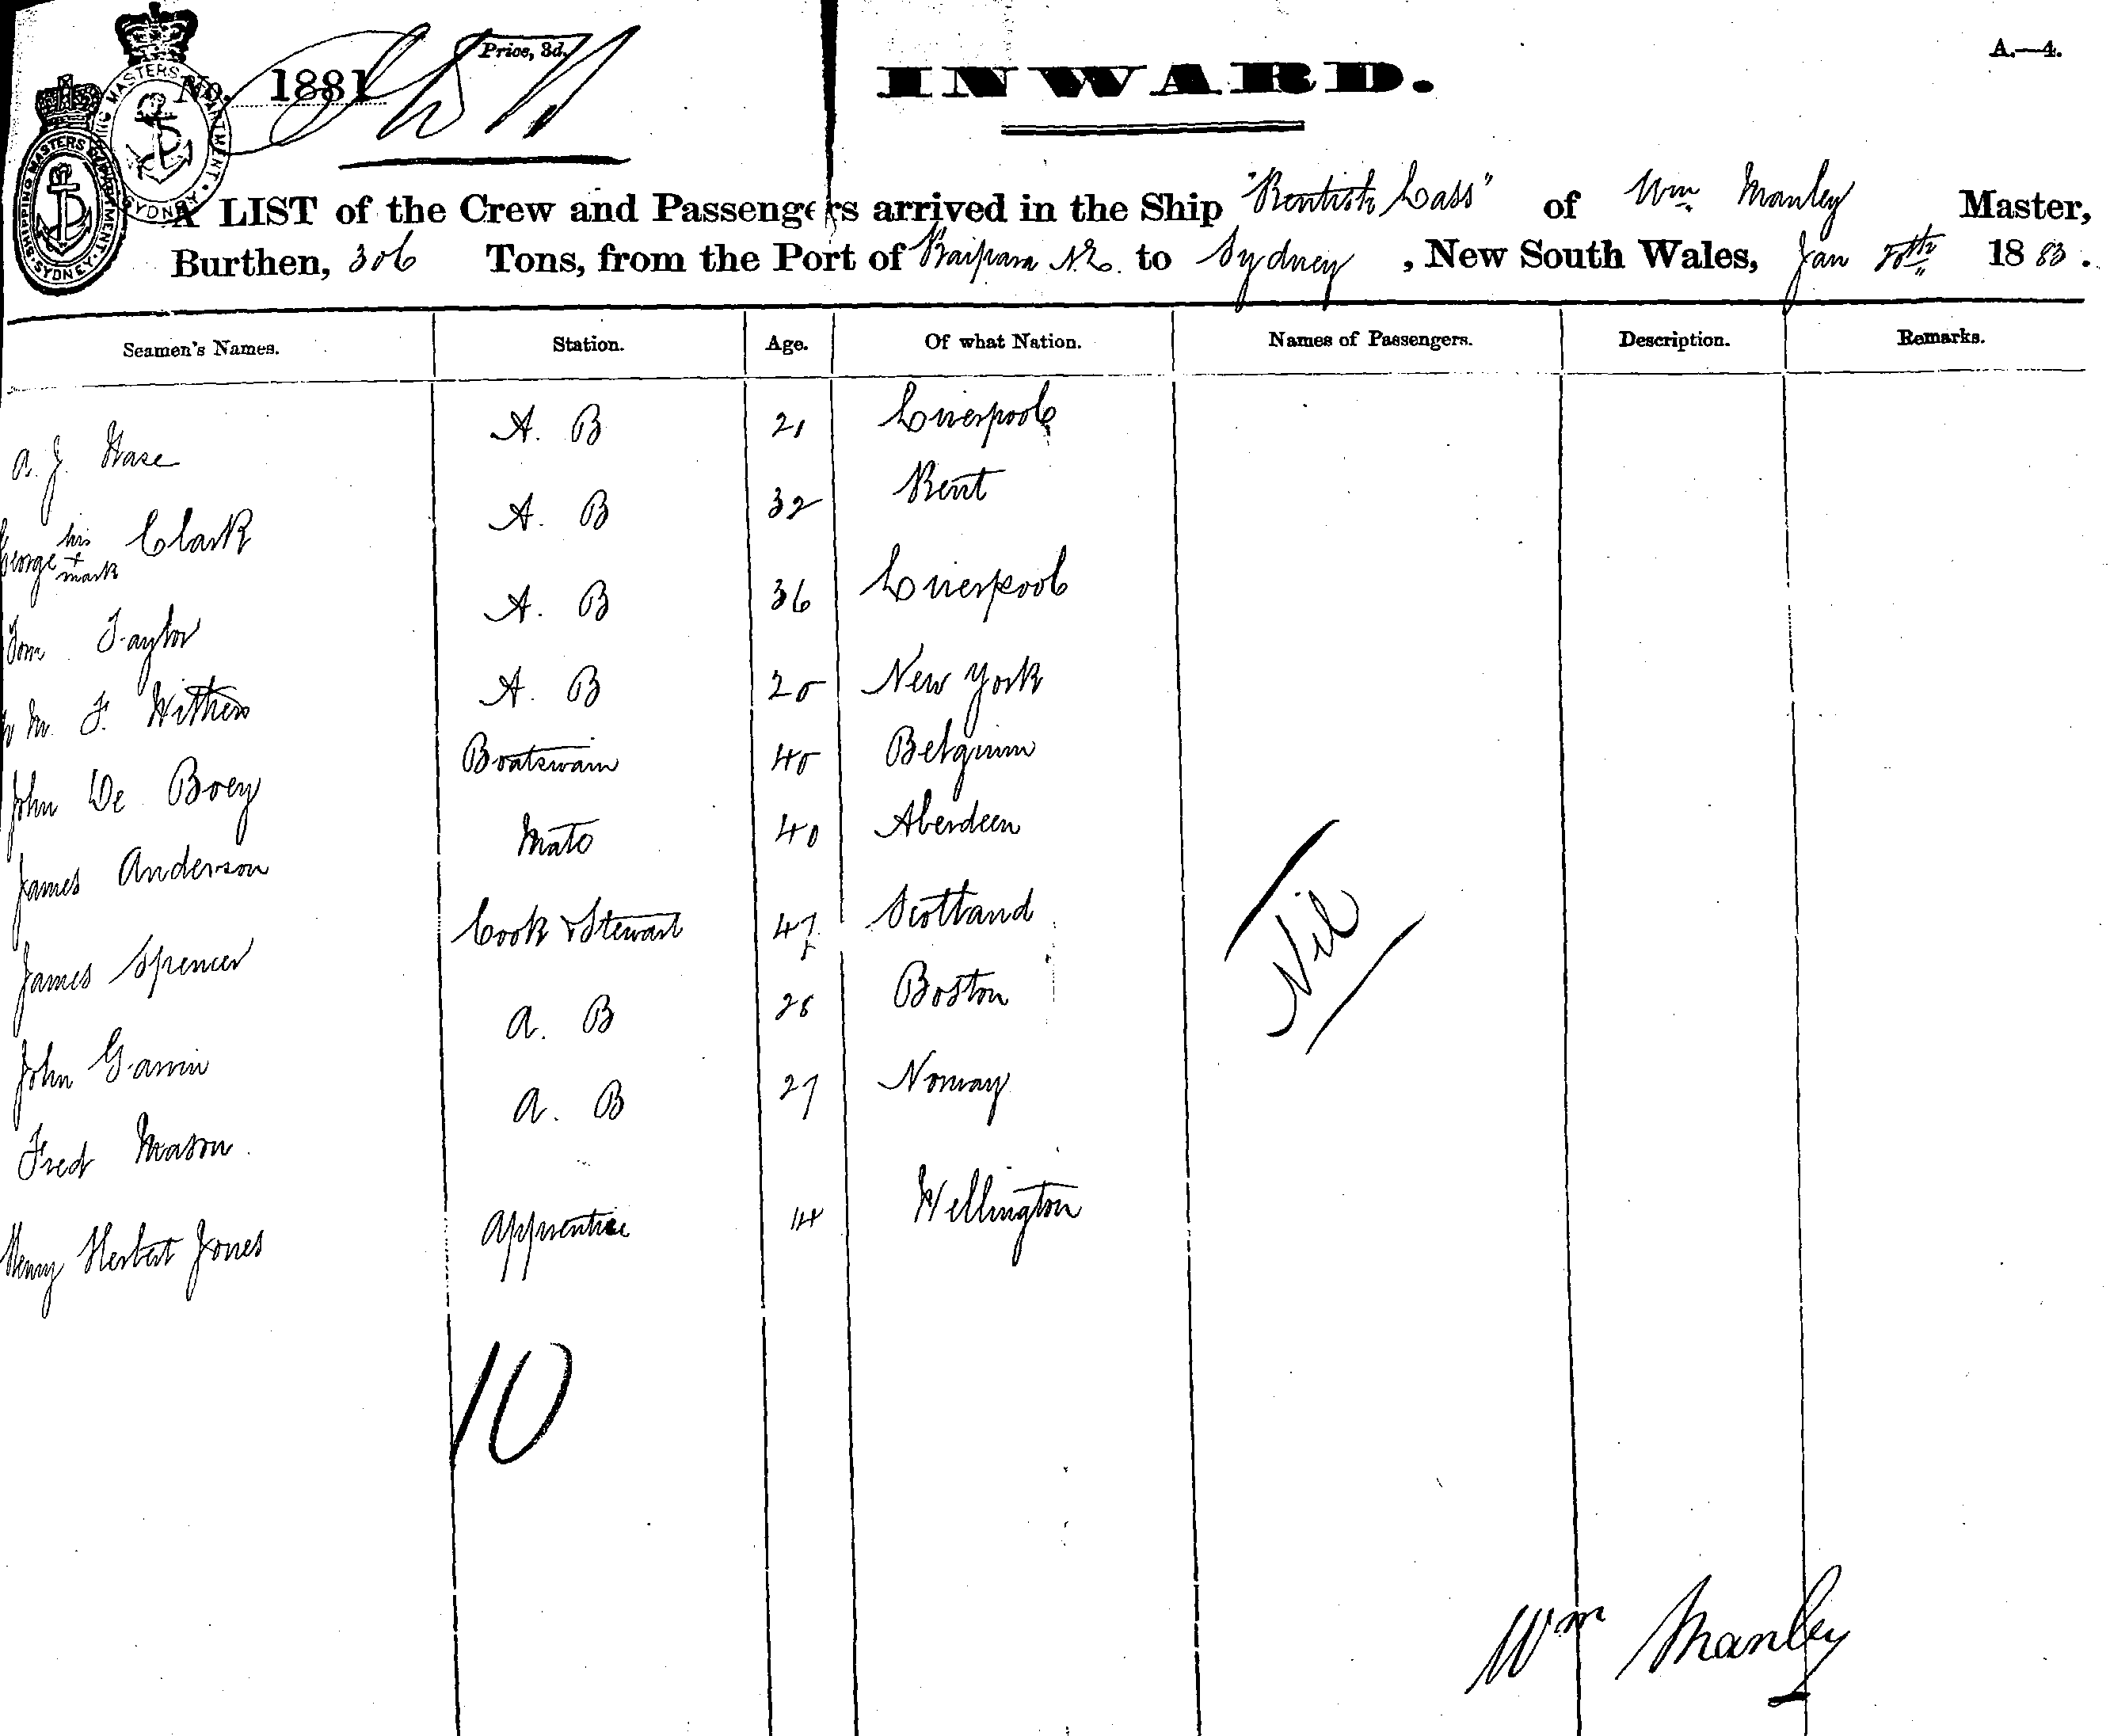 A.—4.
Price, 3d.
No. 1881
INWARD.
A LIST of the Crew and Passengers arrived in the Ship "Kentish Lass" of Wm Manley Master,
Burthen, 306 Tons, from the Port of Kaipara N.Z. to Sydney, New South Wales, Jan 1883.
Seamen's Names. Station. Age. Of what Nation. Names of Passengers. Description. Remarks.
A. J. A. B 21 Liverpool
George his + mark Clark A. B 32 Kent
Tom Taylor A. B 36 Liverpool
F. Withers A. B 20 New York
John De Boey Boatswain 40 Belgium
James Anderson Mate 40 Aberdeen
James Spencer Cook & Steward 47 Scotland
John A. B 28 Boston
Fred Mason A. B 27 Norway
Henry Herbert Jones Apprentice 14 Wellington
Nil
10
Wm Manley
SHIPPING MASTERS DEPARTMENT · SYDNEY ·
SHIPPING MASTERS DEPARTMENT · SYDNEY ·